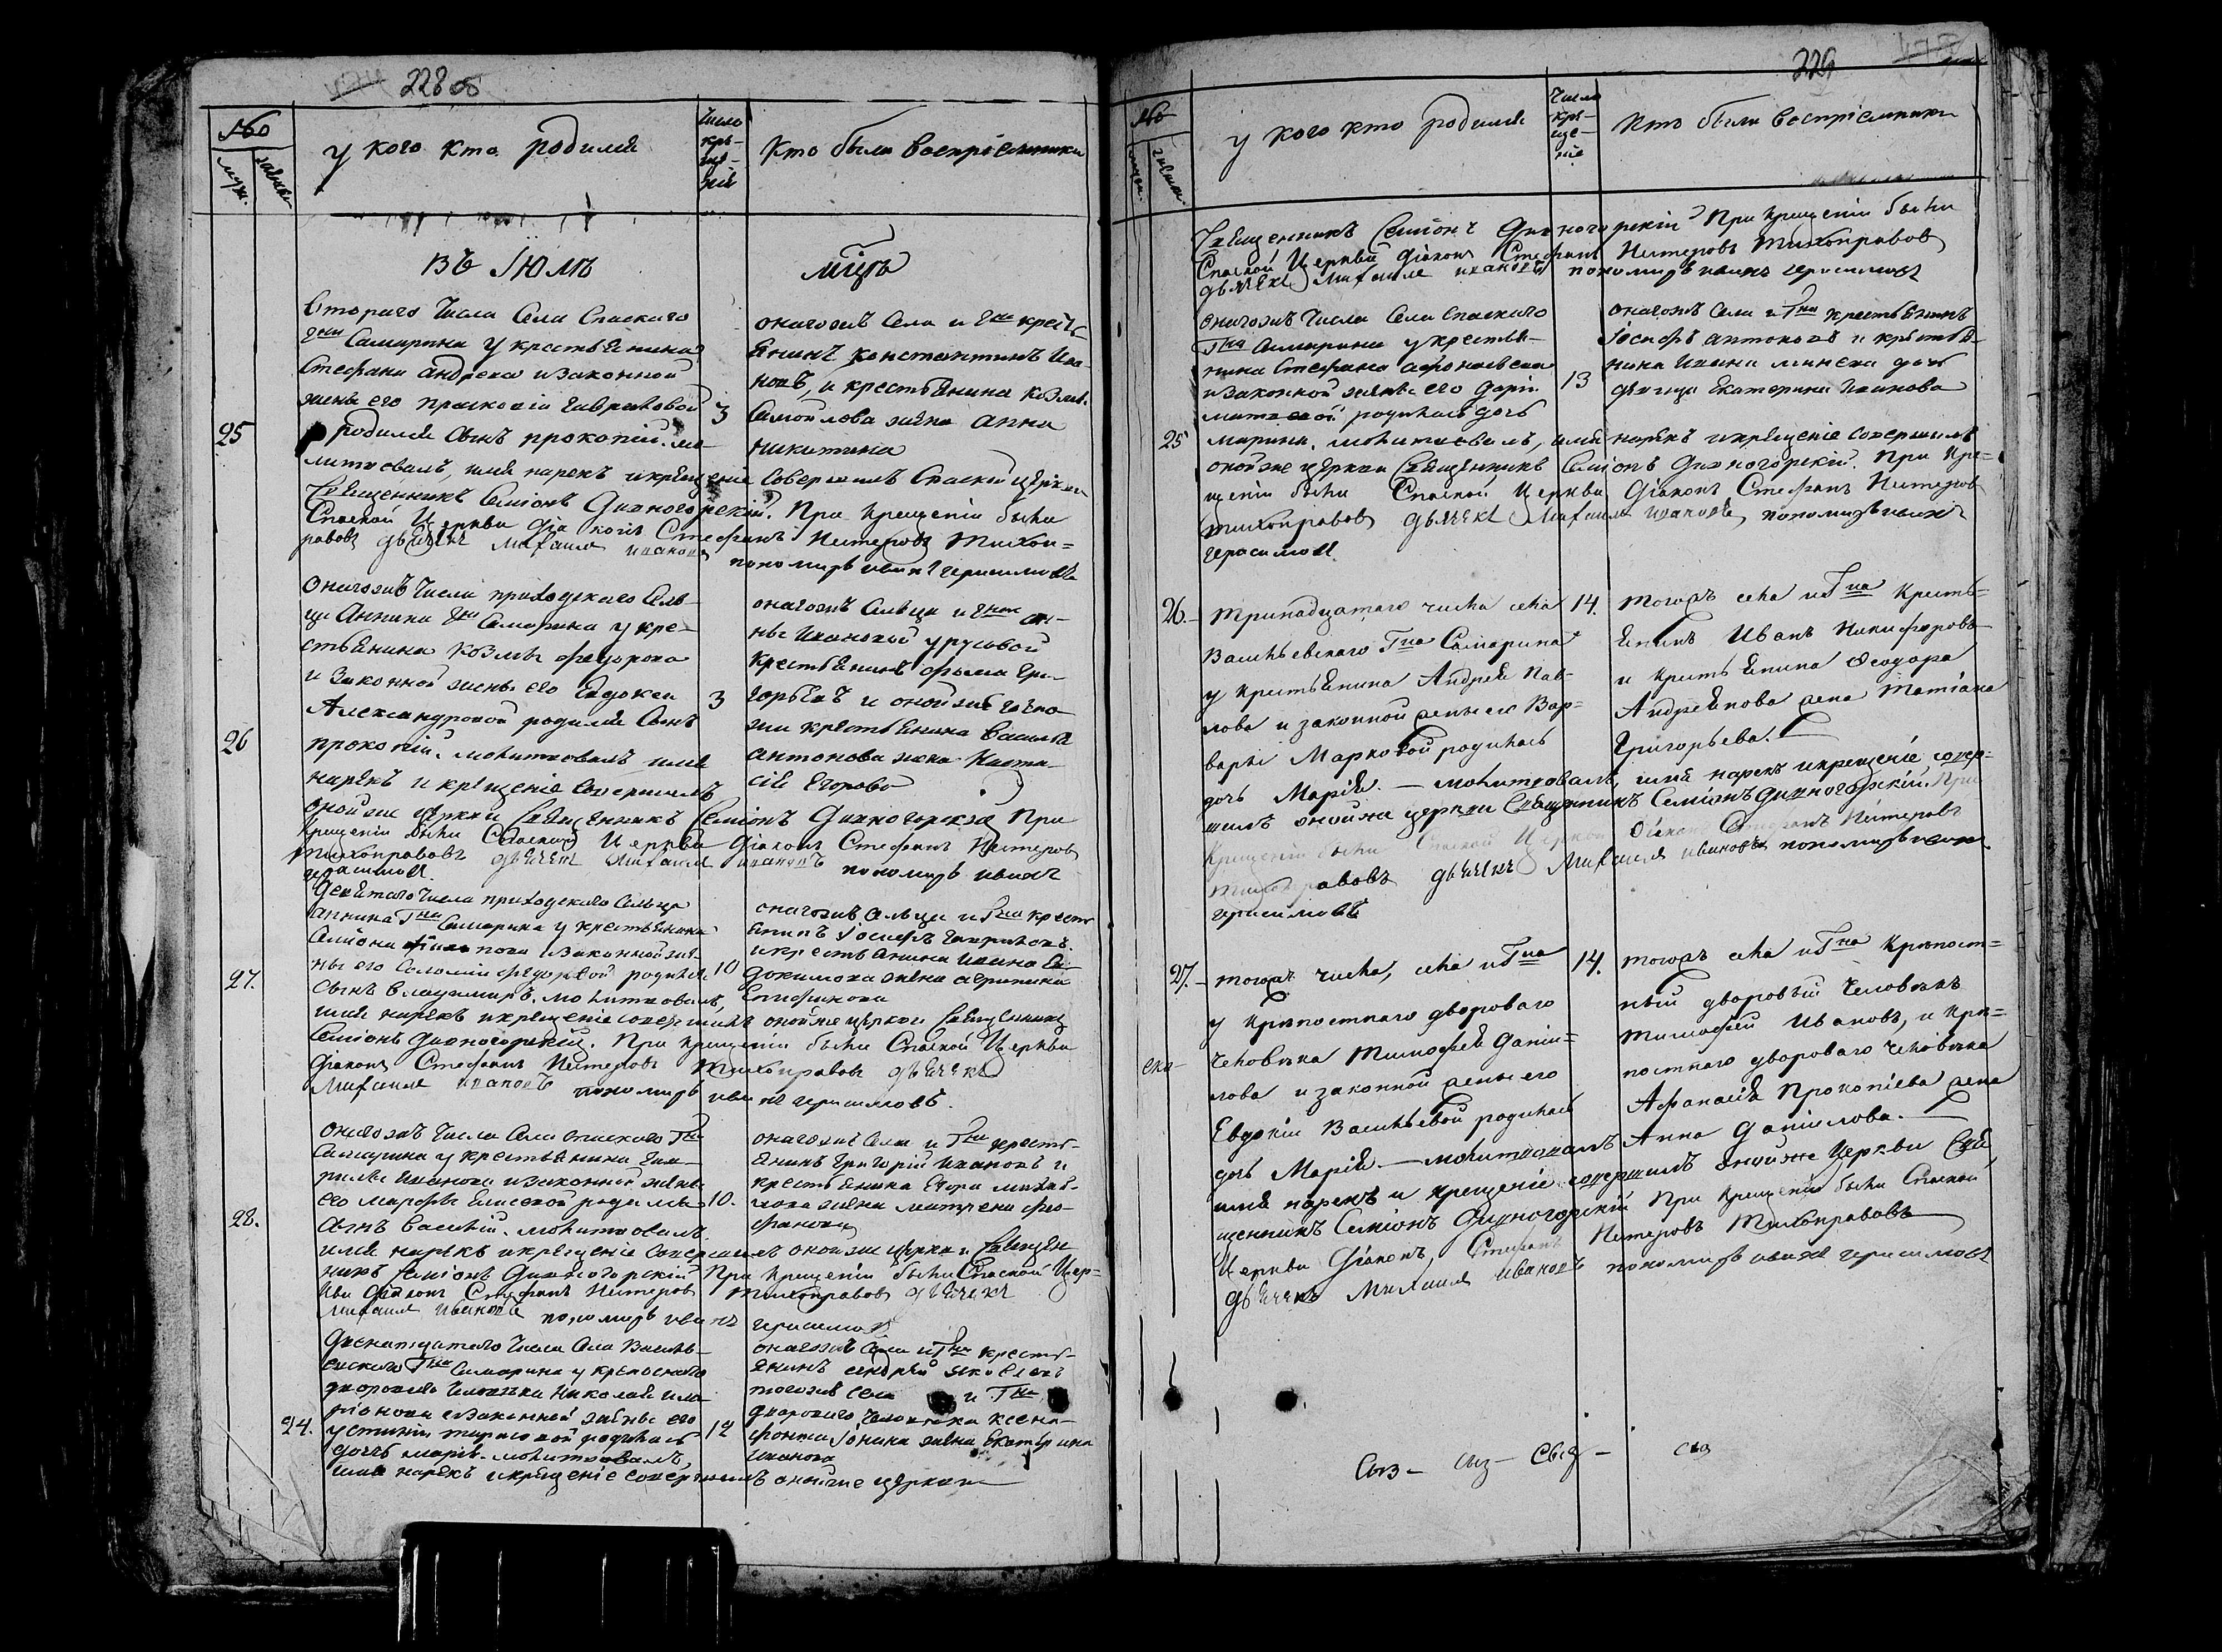 228 об
№
муж.
женск.
у кого кто родился
Число кре-
ще-
ній
Кто были воспріемники
въ Іюлѣ
мцѣ
Втораго Числа Села Спаскаго
Гна Самарина у крестьянина
Стефана Андреева и законной
жены его прасковіи Гавриловой
25
родился сынъ прокопій. мо-
литвовалъ, имя нарекъ и крещеніе совершилъ Спаской церкви
Священникъ Семіонъ Дивногорскій. При Крещеніи были
Спаской Церкви Діаконъ Стефанъ Нестеровъ Тихон-
равовъ дьячекъ Михаилъ Ивановъ пономарь иванъ герасимовъ
3
онагожъ Села и Гна крестья-
янинъ константинъ Ива-
новъ, и крестьянина козмы
Самойлова жена Анна
никитина
Онагожъ Числа приходскаго Сель-
ца Аннина Гна Самарина у кре-
стьянина козмы федорова
и законной жены его Евдокеи
Александровой родился Сынъ
26
прокопій. молитвовалъ имя
нарекъ и крещеніе совершилъ
оной же церкви Священникъ Семіонъ Дивногорскій При
Крещеніи были Спаской Церкви Діаконъ Стефанъ Нестеровъ
Тихонравовъ дьячекъ Михаилъ ивановъ пономарь иванъ
герасимовъ.
3
онагожъ Сельца и Гжи Ан-
ны Ивановой урусовой
крестьянинъ фома Гри-
горьевъ и оной же госпо-
жи крестьянина Василья
антонова жена Наста-
сія Егорова
Девятаго Числа приходскаго Сельца
аннина Гна Самарина у крестьянина
Семіона филипова и законной же-
ны его Соломіи федоровой родился
27.
сынъ владимиръ. молитвовалъ,
имя нарекъ и крещеніе совершилъ оной же церкви Священникъ
Семіонъ Дивногорскій. При Крещеніи были Спаской Церкви
Діаконъ Стефанъ Нестеровъ Тихонравовъ дьячекъ
Михаилъ ивановъ пономарь иванъ герасимовъ.
10
онагожъ сельца и Гна кресть-
янинъ Іосифъ Гавриловъ.
и крестьянина ивана Ев-
докимова жена
Онагожъ Числа Села спаскаго Гна
Самарина у крестьянина Гав-
рилы Иванова и законной жены
его марфы Елисевой родился
28.
сынъ Василій. молитвовалъ
имя нарекъ и крещеніе совершилъ оной же церкви Священ-
никъ Семіонъ Дивногорскій При Крещеніи были Спаской Цер-
кви Діаконъ Стефанъ Нестеровъ Тихонравовъ дьячекъ
михаилъ Ивановъ пономарь иванъ герасимовъ
10.
онагожъ Села и Гна кресть-
янинъ Григорій Ивановъ и
крестьянина Егора михай-
лова жена матрена фео-
фанова
Двенатцатаго Числа Села Василь-
евскаго Гна Самарина у крепоснаго
двороваго Человека Николая ила-
ріонова и законной жены его
24.
устиніи тарасовой родилась
дочь марія. молитвовалъ,
имя нарекъ и крещеніе совершилъ оной же церкви
12
онагожъ Села и Гна кресть-
янинъ андрей яковлевъ
тогожъ села и Гна
двороваго Человека ксено-
фонта Іонина жена Екатерина
иванова
229
№
женск.
у кого кто родился
Число
кре-
ще-
ніе
Кто были воспріемники
Священникъ Семіонъ Дивногорскій При Крещеніи были
Спаской Церкви Діаконъ Стефанъ Нестеровъ Тихонравовъ
дьячекъ Михаилъ ивановъ пономарь иванъ герасимовъ
онагожъ Числа Села спаскаго
Гна Самарина у кресть-
нина Стефана афонасьева
и законной жены его Дарьи
родилась дочь
25
марина. молитвовалъ, имя нарекъ и крещеніе совершилъ
оной же церкви Священникъ Семіонъ Дивногорскій. При Кре-
щеніи были Спаской Церкви Діаконъ Стефанъ Нестеровъ
Тихонравовъ дьячекъ Михаилъ ивановъ, пономарь иванъ
герасимовъ.
13
онагожъ Села и Гна крестьянинъ
Іосифъ антоновъ и крестья-
нина Ивана минеева дочь
девица Екатерина Иванова
26.
Тринадцатаго числа села
Васильевскаго Гна Самарина
у Крестьянина Андрея Пав-
лова и законной жены его Вар-
вары Марковой родилась
дочь Марія. — молитвовалъ, имя нарекъ и крещеніе совер-
шилъ оной же церкви Священникъ Семіонъ Дивногорскій. При
Крещеніи были Спаской Церкви Діаконъ Стефанъ Нестеровъ
Тихонравовъ дьячекъ Михаилъ ивановъ пономарь иванъ
герасимовъ
14.
тогожъ села и Гна Кресть-
янинъ Иванъ Никифоровъ
и Крестьянина Ѳеодора
Андреянова жена Татіана
Григорьева.
27.
тогожъ числа, села и Гна
у Крѣпостнаго двороваго
Человѣка Тимофея Даніи-
лова и законной жены его
Евдокіи Васильевой родилась
дочь Марія. — молитвовалъ
имя нарекъ и крещеніе совершилъ оной же Церкви Свя-
щенникъ Семіонъ Дивногорскій При Крещеніи были Спаской
Церкви Діаконъ, Стефанъ Нестеровъ Тихонравовъ
дьячекъ Михаилъ Ивановъ пономарь иванъ герасимовъ
14.
тогожъ села и Гна Крѣпост-
ный дворовый Человѣкъ
Тимофей Ивановъ, и Крѣ-
постнаго двороваго Человѣка
Афанасія Прокопіева жена
Анна Даніилова.